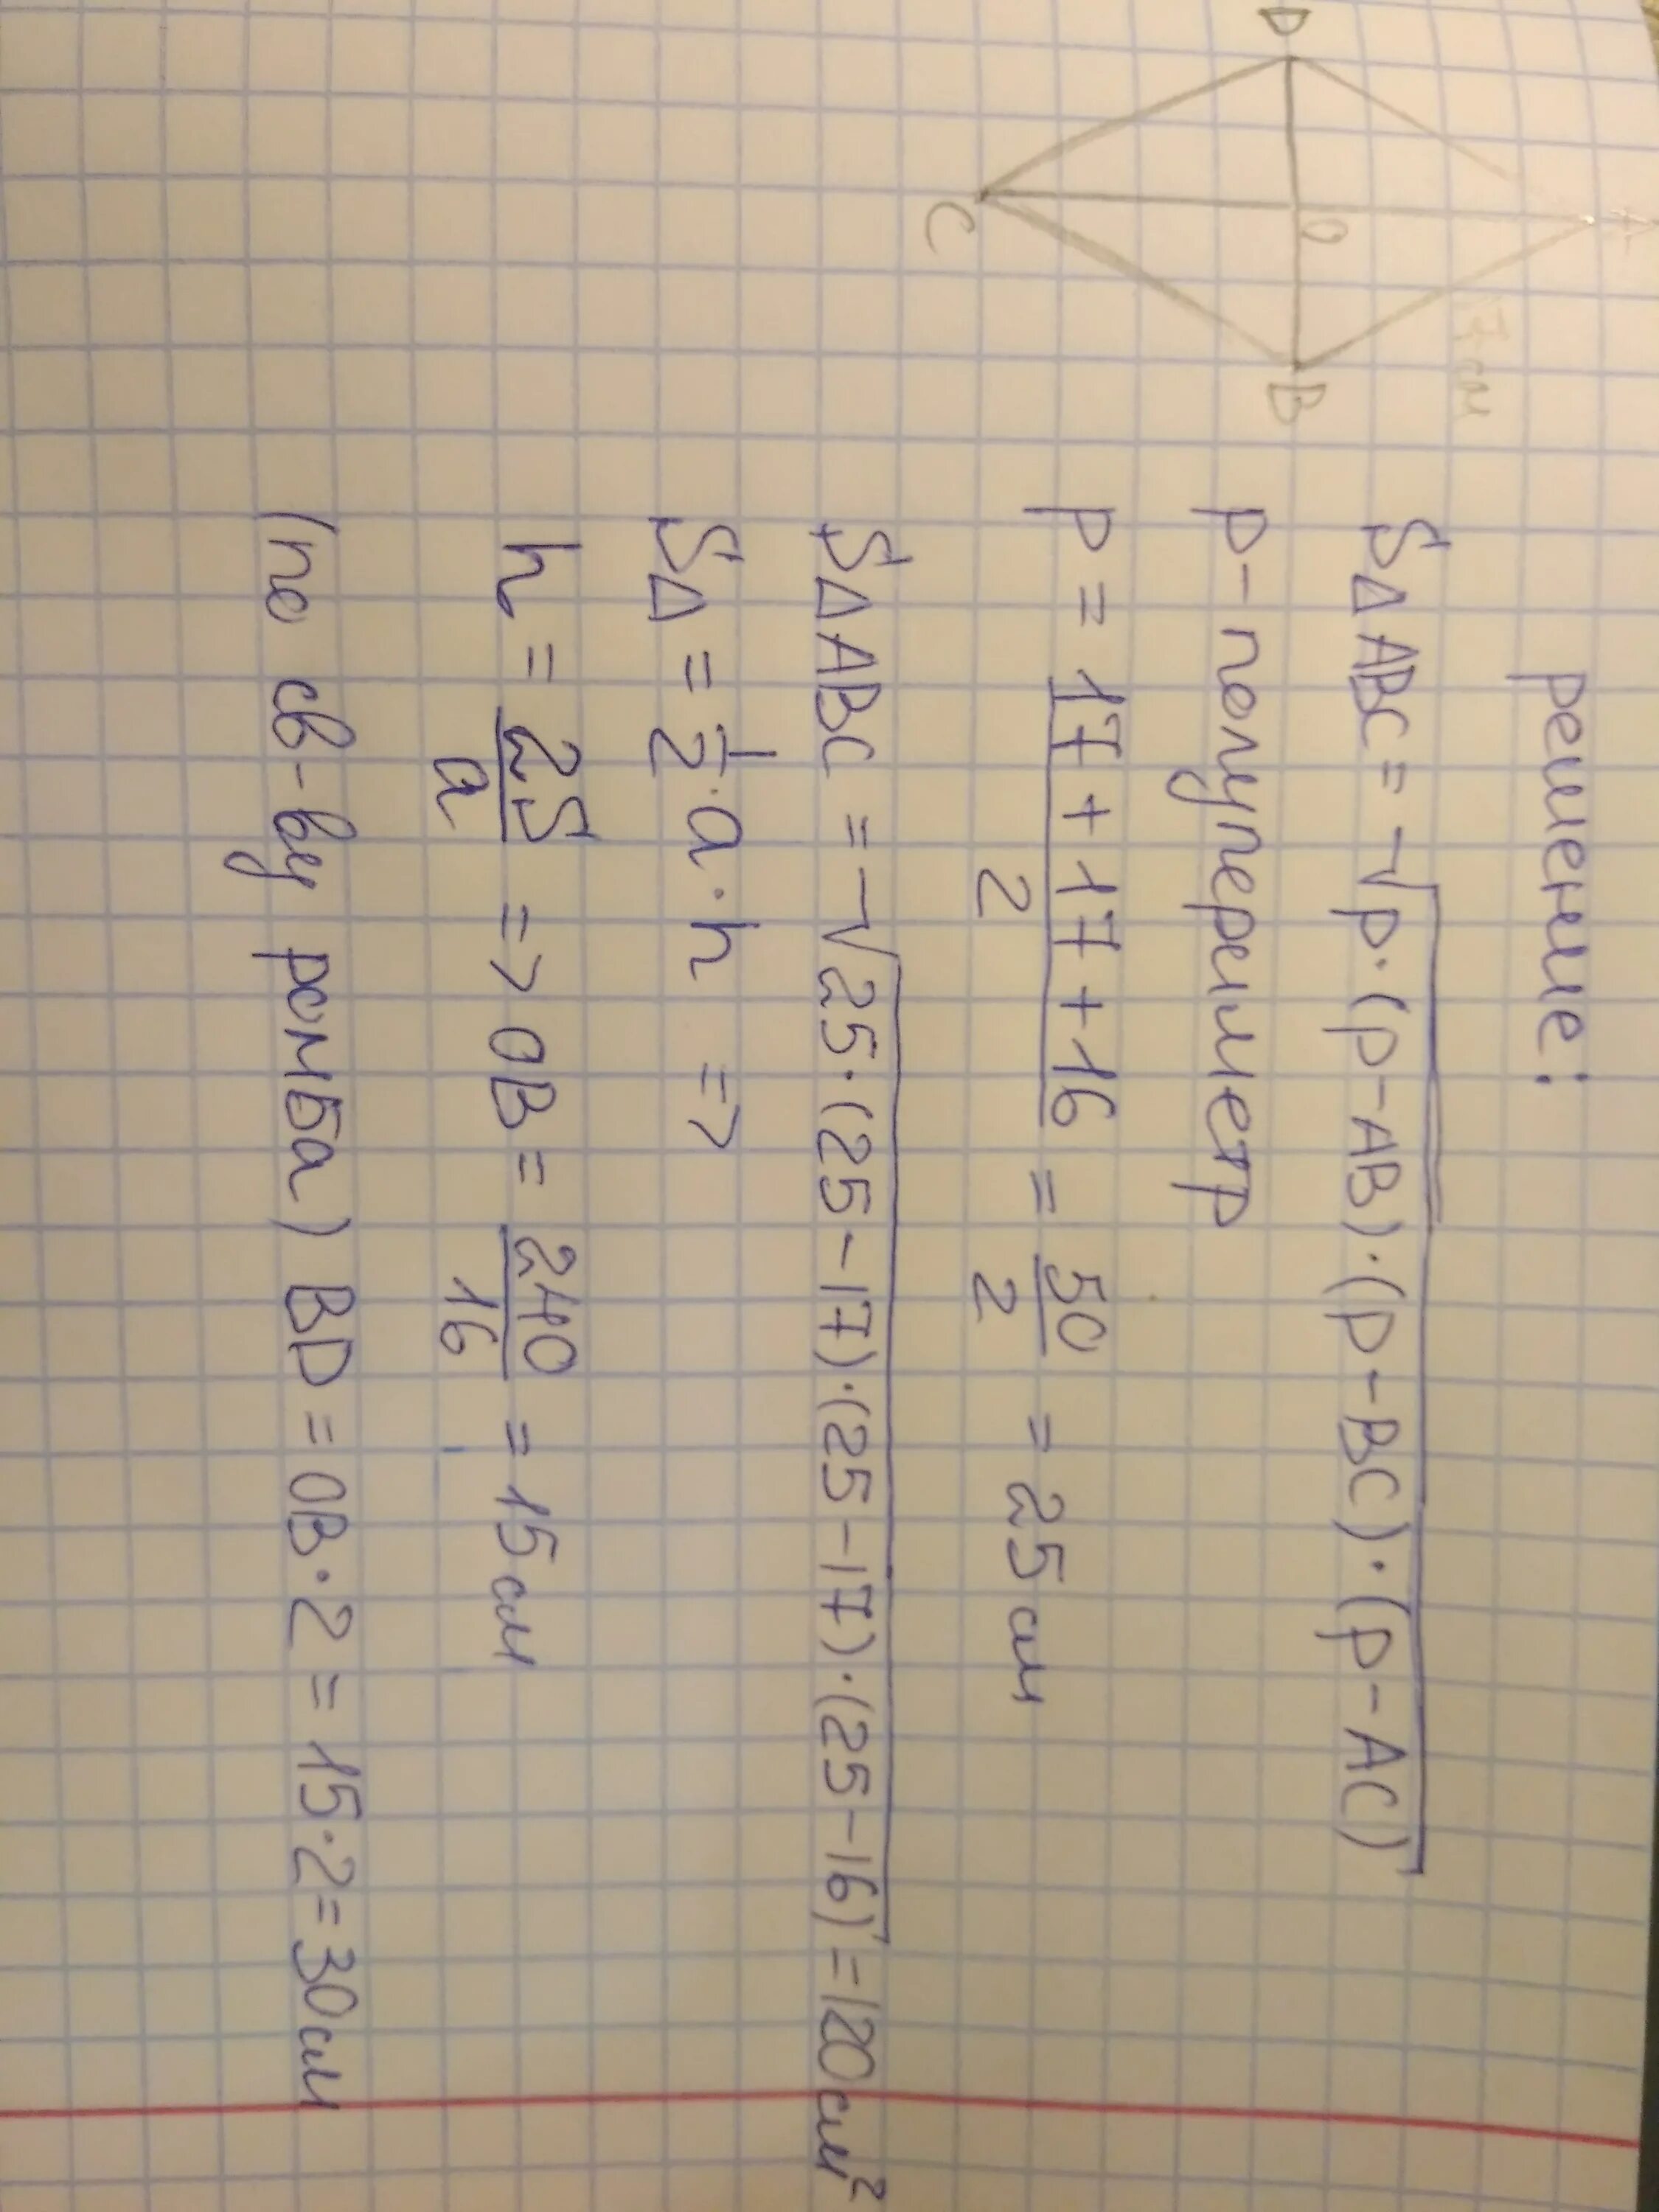 решение:
S△ABC = √p·(p-AB)·(p-BC)·(p-AC)
p-полупериметр
p = (17+17+16)/2 = 50/2 = 25 см
S△ABC = √25·(25-17)·(25-17)·(25-16) = 120 см²
S△ = 1/2·a·h =>
h = 2S/a => OB = 240/16 = 15 см
(по св-ву ромба) BD = OB·2 = 15·2 = 30 см
A
17 см
D
O
B
C